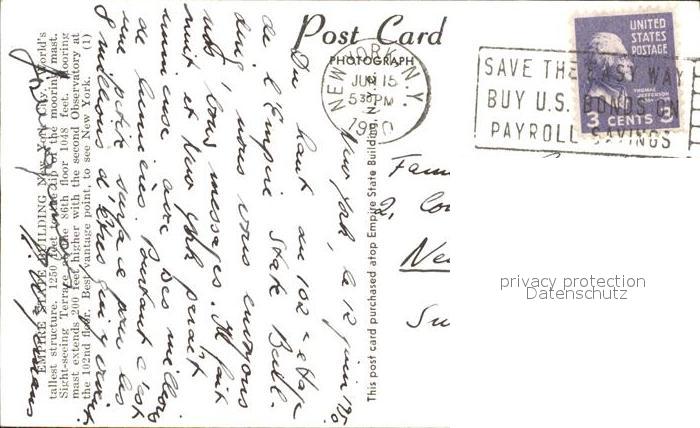 Post Card
PHOTOGRAPH
NEW YORK, N.Y.
JUN 15
5 30 PM
1950
SAVE THE EASY WAY
BUY U.S. BONDS ON
PAYROLL SAVINGS
UNITED
STATES
POSTAGE
THOMAS
JEFFERSON
3 CENTS 3
New York, le 12 juin '50
Du haut du 102e étage
de l'Empire State Build-
ding, nous vous envoyons
nos bons messages. Il fait
nuit et New York paraît
immense avec ses millions
de lumières. Pourtant c'est
une petite surface pour les
8 millions d'êtres qui y vivent.
Fam
2,
Ne
Su
This post card purchased atop Empire State Building, N.Y.
EMPIRE STATE BUILDING New York City. World's
tallest structure. 1250 feet to the tip of the mooring mast.
Sight-seeing Terrace at the 86th floor 1048 feet. Mooring
mast extends 200 feet higher with the second Observatory at
the 102nd floor. Best vantage point, to see New York. (1)
privacy protection
Datenschutz